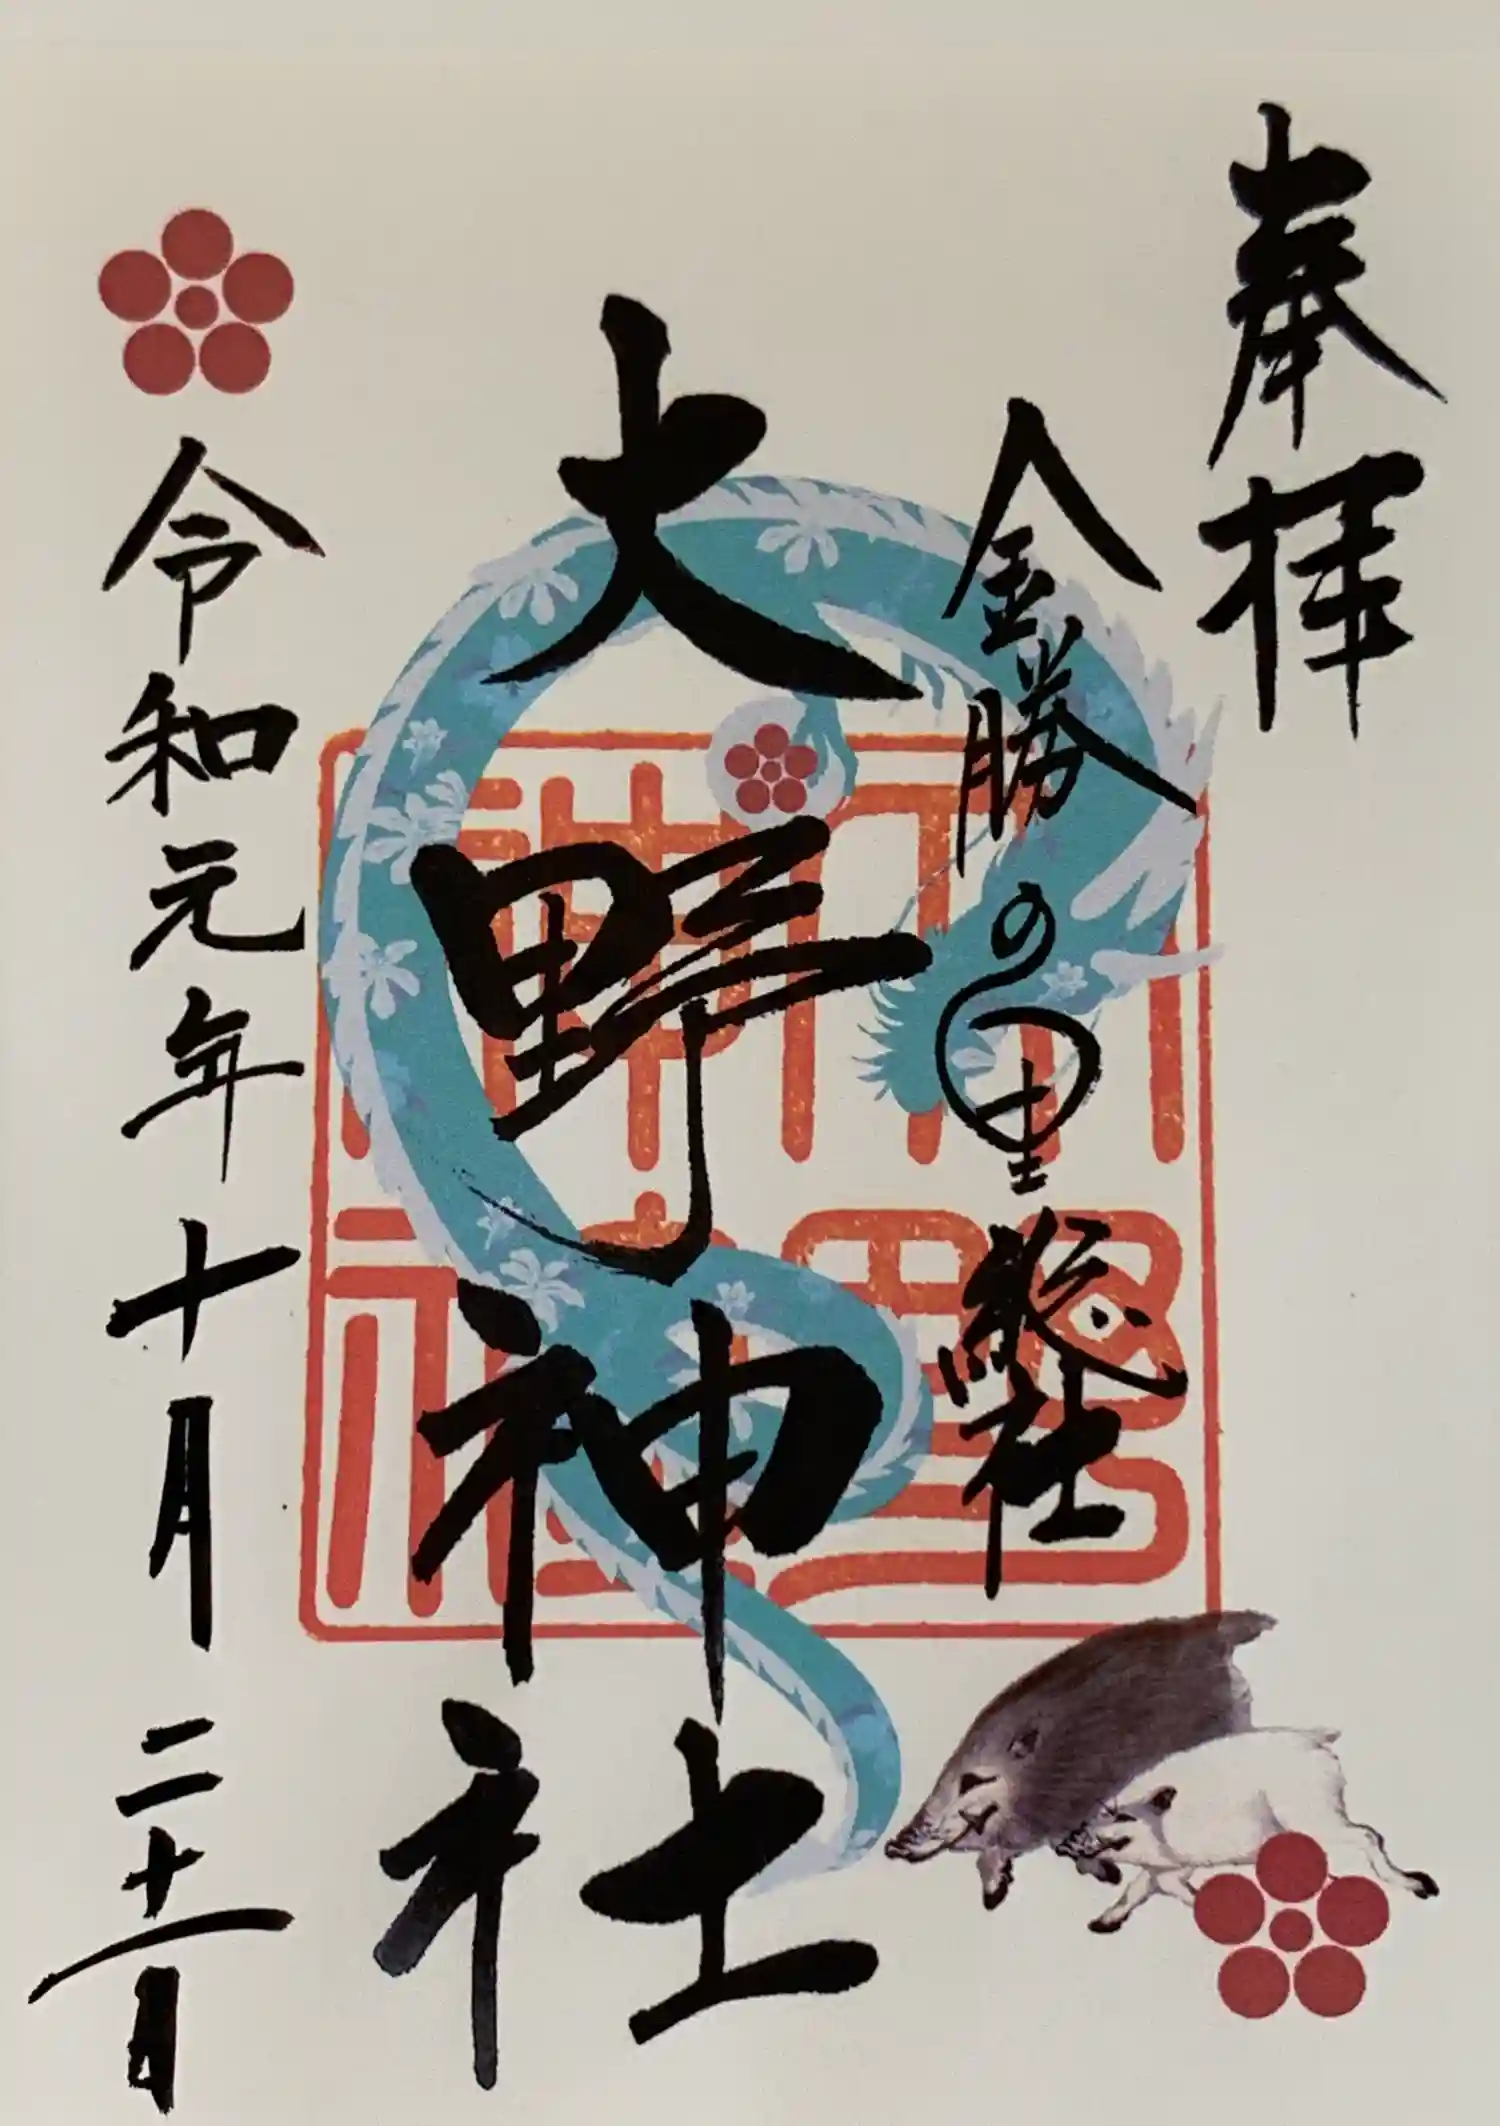 奉拝
金勝の里總社
大野神社
令和元年十月二十一日